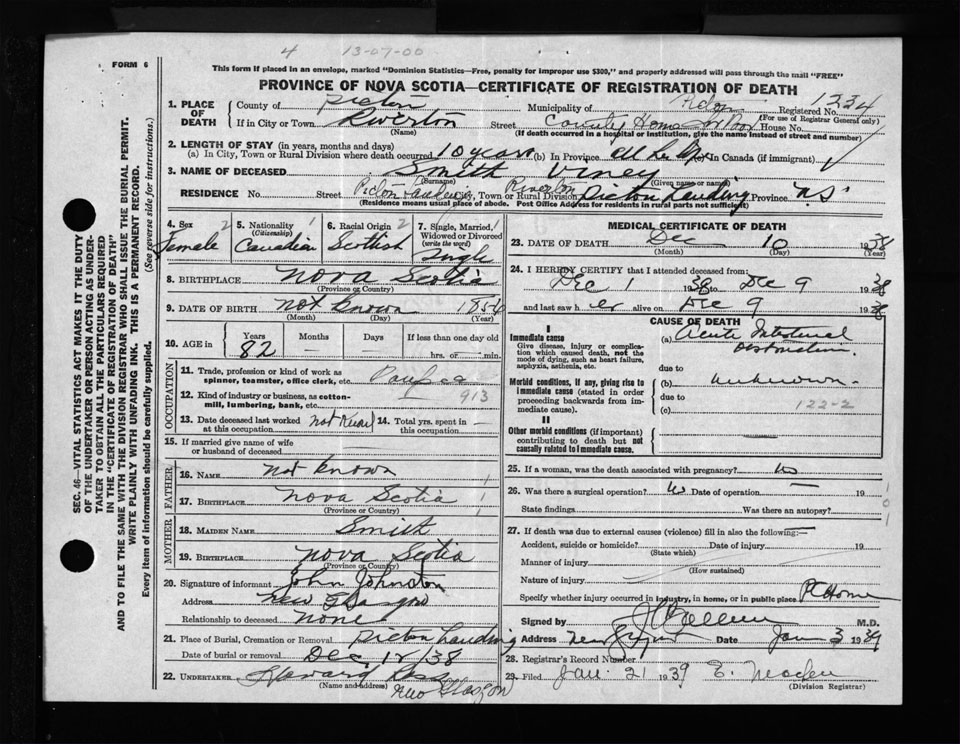 4 13-07-00
FORM 6
This form if placed in an envelope, marked "Dominion Statistics—Free, penalty for improper use $300," and properly addressed will pass through the mail "FREE"
PROVINCE OF NOVA SCOTIA—CERTIFICATE OF REGISTRATION OF DEATH
1. PLACE OF DEATH
County of Pictou Municipality of Pictou Registered No. 1234
(For use of Registrar General only)
If in City or Town Riverton Street County Home for Poor House No.
(Name) (If death occurred in a hospital or institution, give its name instead of street and number)
2. LENGTH OF STAY (in years, months and days)
(a) In City, Town or Rural Division where death occurred 10 years (b) In Province All her life (c) In Canada (if immigrant)
3. NAME OF DECEASED Smith Viney
(Surname) (Given name or names)
RESIDENCE No. Street Pictou Landing City, Town or Rural Division Riverton Pictou Landing Province N.S
(Residence means usual place of abode. Post Office Address for residents in rural parts not sufficient)
4. Sex 2
Female
5. Nationality 1
(Citizenship)
Canadian
6. Racial Origin 2
Scottish
7. Single, Married, 1
Widowed or Divorced
(write the word)
Single
8. BIRTHPLACE Nova Scotia
(Province or Country)
9. DATE OF BIRTH not known 1856
(Month) (Day) (Year)
10. AGE in Years Months Days If less than one day old
82 — hrs. or min.
OCCUPATION
11. Trade, profession or kind of work as
spinner, teamster, office clerk, etc. Pauper
12. Kind of industry or business, as cotton-
mill, lumbering, bank, etc. 913
13. Date deceased last worked
at this occupation Not Known
14. Total yrs. spent in
this occupation —
15. If married give name of wife
or husband of deceased
FATHER
16. Name not known
17. Birthplace Nova Scotia
(Province or Country)
MOTHER
18. Maiden Name Smith
19. Birthplace Nova Scotia
(Province or Country)
20. Signature of informant John Johnston
Address New Glasgow
Relationship to deceased none
21. Place of Burial, Cremation or Removal Pictou Landing
Date of burial or removal Dec 12/38
22. Undertaker Howard Ross
(Name and address) New Glasgow
MEDICAL CERTIFICATE OF DEATH
23. DATE OF DEATH Dec 10 1938
(Month) (Day) (Year)
24. I HEREBY CERTIFY that I attended deceased from:
Dec 1 1938 to Dec 9 1938
and last saw her alive on Dec 9 1938
CAUSE OF DEATH
I
Immediate cause
Give disease, injury or complica-
tion which caused death, not the
mode of dying, such as heart failure,
asphyxia, asthenia, etc.
(a) Acute Intestinal
Obstruction.
due to
Morbid conditions, if any, giving rise to
immediate cause (stated in order
proceeding backwards from im-
mediate cause).
(b) unknown
due to
(c) 122-2
II
Other morbid conditions (if important)
contributing to death but not
causally related to immediate cause.
25. If a woman, was the death associated with pregnancy? No
26. Was there a surgical operation? No Date of operation — 19
State findings Was there an autopsy?
27. If death was due to external causes (violence) fill in also the following:—
Accident, suicide or homicide? Date of injury 19
(State which)
Manner of injury
(How sustained)
Nature of injury
Specify whether injury occurred in industry, in home, or in public place P C Home
Signed by M.D.
Address New Glasgow Date Jan 3 1939
28. Registrar's Record Number
29. Filed Jan. 21 1939
(Division Registrar)
SEC. 46—VITAL STATISTICS ACT MAKES IT THE DUTY
OF THE UNDERTAKER OR PERSON ACTING AS UNDER-
TAKER TO OBTAIN ALL THE PARTICULARS REQUIRED
IN THE "CERTIFICATE OF REGISTRATION OF DEATH"
AND TO FILE THE SAME WITH THE DIVISION REGISTRAR WHO SHALL ISSUE THE BURIAL PERMIT.
WRITE PLAINLY WITH UNFADING INK. THIS IS A PERMANENT RECORD.
Every item of information should be carefully supplied. (See reverse side for instructions.)